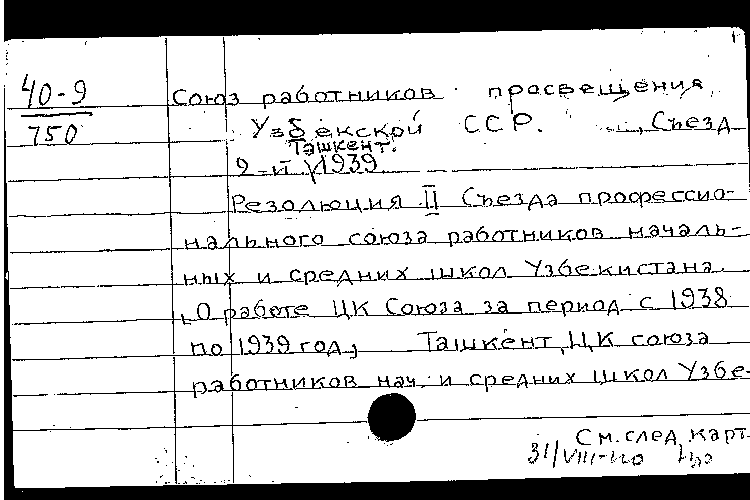 40-9
750
Союз работников просвещения
Узбекской ССР. Съезд
Ташкент.
2-й 1939
Резолюция II Съезда профессио-
нального союза работников началь-
ных и средних школ Узбекистана.
О работе ЦК Союза за период с 1938
по 1939 год, Ташкент, ЦК союза
работников нач. и средних школ Узбе-
См. след. карт.
31/VIII-40